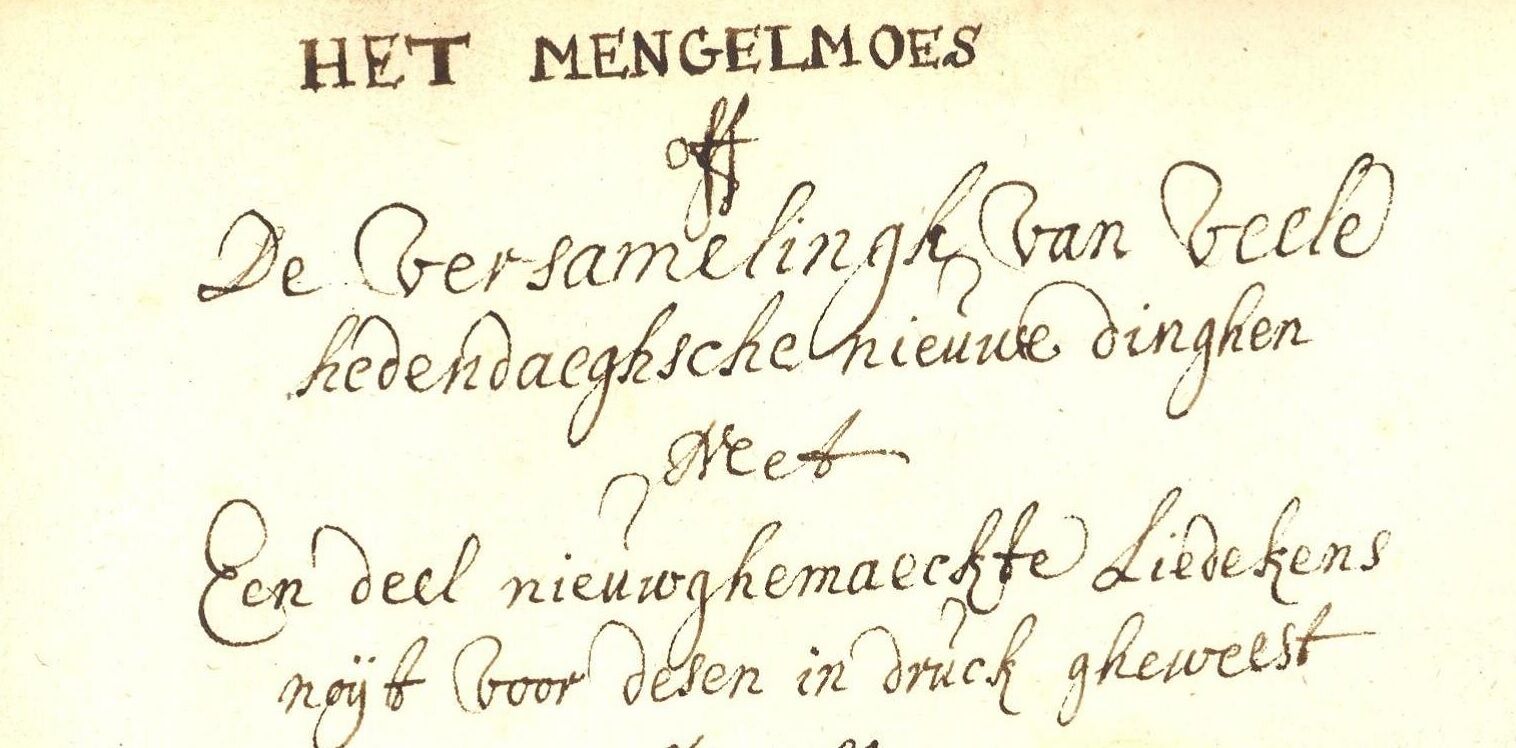 HET MENGELMOES
off
De versamelingh van veele
hedendaeghsche nieuwe dinghen
Met
Een deel nieuwghemaeckte Liedekens
noÿt voor desen in druck gheweest